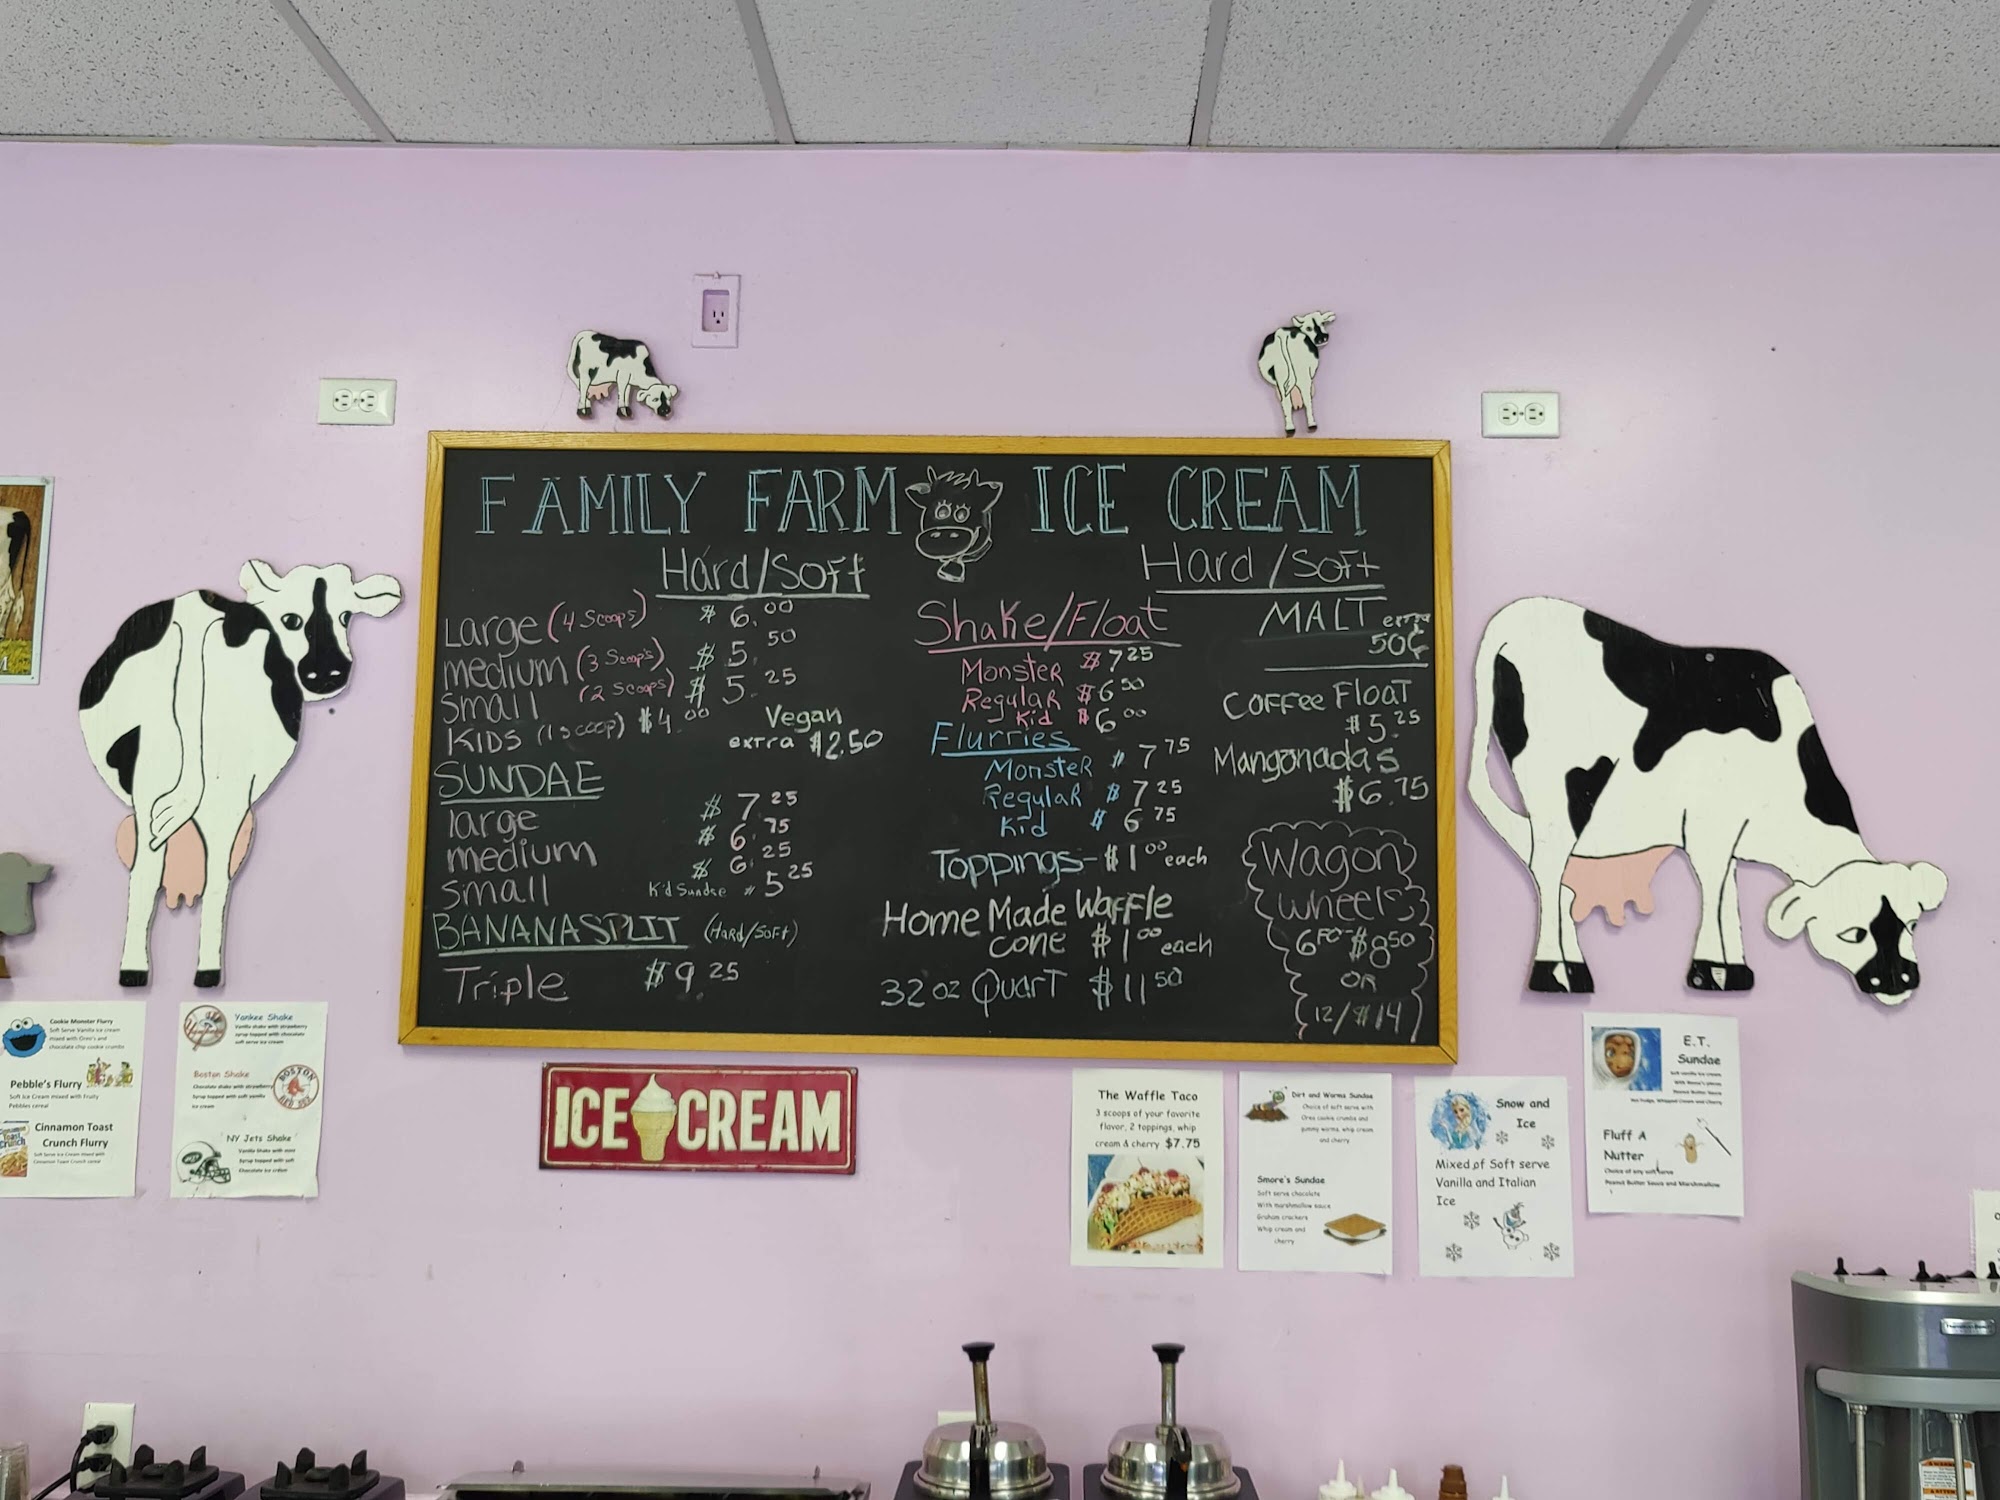 FAMILY FARM ICE CREAM
Hard/Soft
Large (4 scoops) $6.00
medium (3 Scoops) $5.50
Small (2 scoops) $5.25
KIDS (1 scoop) $4.00
Vegan
extra $2.50
SUNDAE
large $7.25
medium $6.75
small $6.25
Kid Sundae $5.25
BANANA SPLIT (Hard/Soft)
Triple $9.25
Hard/Soft
Shake/Float
Monster $7.25
Regular $6.50
Kid $6.00
Flurries
Monster $7.75
Regular $7.25
Kid $6.75
Toppings - $1.00 each
Home Made Waffle
cone $1.00 each
32 oz Quart $11.50
MALT extra
50¢
Coffee Float
$5.25
Mangonadas
$6.75
Wagon
Wheels
6 FO- $8.50
OR
12/$14
ICE CREAM
Cookie Monster Flurry
Soft Serve Vanilla ice cream
mixed with Oreo's and
chocolate chip cookie crumbs
Pebble's Flurry
Soft Ice Cream mixed with Fruity
Pebbles cereal
Cinnamon Toast
Crunch Flurry
Soft Serve Ice Cream mixed with
Cinnamon Toast Crunch cereal
Yankee Shake
Vanilla shake with strawberry
syrup topped with chocolate
soft serve ice cream
Boston Shake
Chocolate shake with strawberry
Syrup topped with soft vanilla
ice cream
BOSTON
RED SOX
NY Jets Shake
Vanilla Shake with mint
Syrup topped with soft
Chocolate ice cream
The Waffle Taco
3 scoops of your favorite
flavor, 2 toppings, whip
cream & cherry $7.75
Dirt and Worms Sundae
Choice of soft serve with
Oreo cookie crumbs and
gummy worms, whip cream
and cherry
Smore's Sundae
Soft serve chocolate
With marshmallow sauce
Graham crackers
Whip cream and
cherry
Snow and
Ice
Mixed of Soft serve
Vanilla and Italian
Ice
E.T.
Sundae
Soft vanilla ice cream
With Reese's pieces
Peanut Butter Sauce
Hot Fudge, Whipped Cream and Cherry
Fluff A
Nutter
Choice of any soft serve
Peanut Butter Sauce and Marshmallow